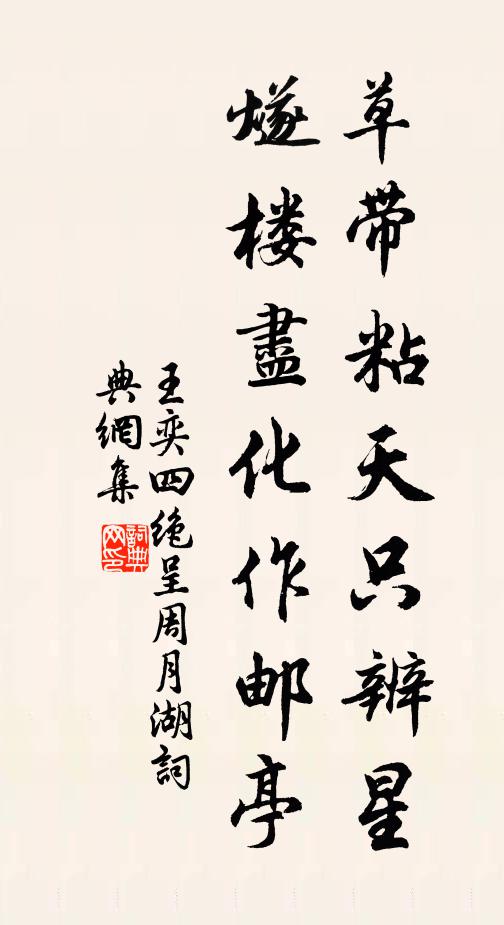 草带粘天只辨星
燧楼盡化作邮亭
王奕四绝呈周月湖詞
典網集
詞典网印